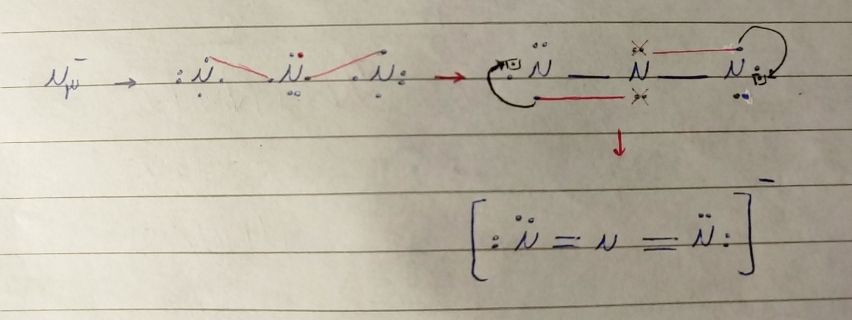 N۳⁻ → :Ṅ. .N̈. .N: → :N̈ — N — N:
↓
[:N̈ = N = N̈:]⁻